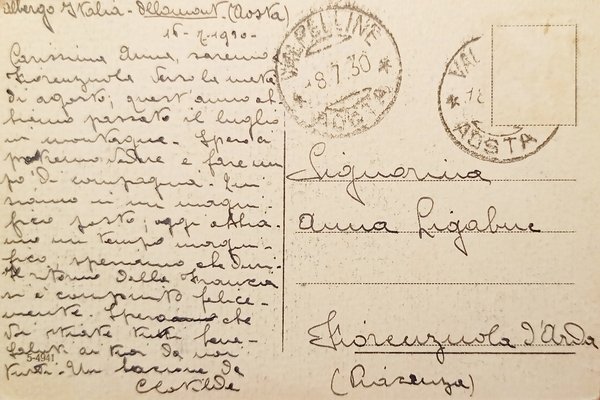 Albergo Italia - Ollomont (Aosta)
16-7-1930
Carissima Anna, saremo
Fiorenzuola verso la metà
di agosto; quest'anno ab
biamo passato il luglio
in montagna. Spero ci
potremo vedere e fare un
po' di compagnia. Qui
siamo in un magni-
fico posto; oggi abbia
mo un tempo magni-
fico, speriamo che duri.
Il ritorno dalla Francia
si è compiuto felice-
mente. Spero che
voi stiate tutti bene
Saluti ai tuoi da noi
tutti. Un bacione da
Clotilde
5-4941
VALPELLINE
8.7.30
AOSTA
VAL
18
AOSTA
Signorina
Anna Ligabue
Fiorenzuola d'Arda
(Piacenza)